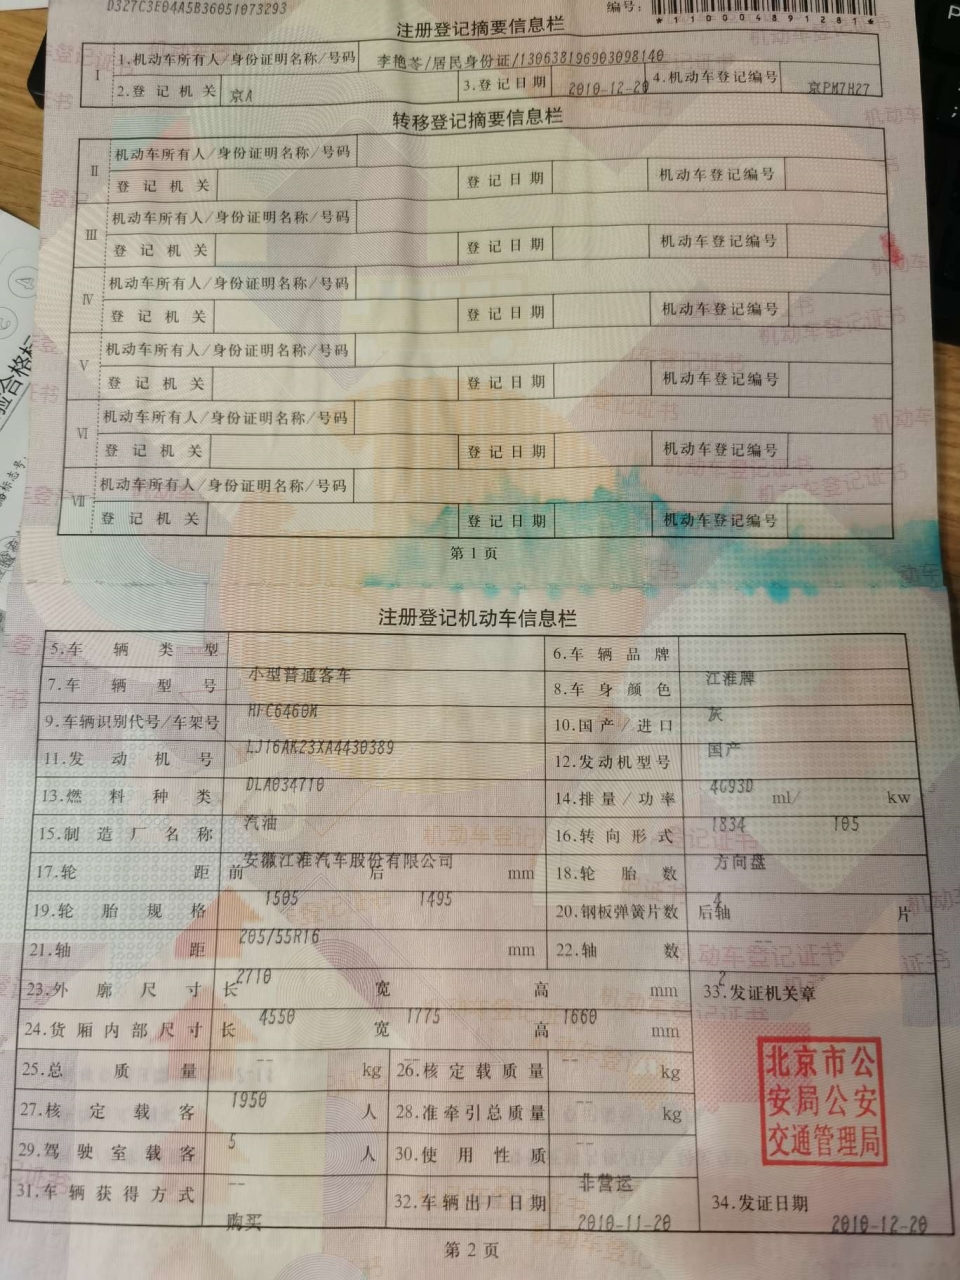 D327C3E04A5B36051073293
编号:
*110004891281*
注册登记摘要信息栏
I
1.机动车所有人/身份证明名称/号码 李艳苓/居民身份证/130638196903098140
2.登记机关 京A 3.登记日期 2010-12-20 4.机动车登记编号 京PM7H27
转移登记摘要信息栏
II
机动车所有人/身份证明名称/号码
登记机关 登记日期 机动车登记编号
III
机动车所有人/身份证明名称/号码
登记机关 登记日期 机动车登记编号
IV
机动车所有人/身份证明名称/号码
登记机关 登记日期 机动车登记编号
V
机动车所有人/身份证明名称/号码
登记机关 登记日期 机动车登记编号
VI
机动车所有人/身份证明名称/号码
登记机关 登记日期 机动车登记编号
VII
机动车所有人/身份证明名称/号码
登记机关 登记日期 机动车登记编号
第1页
注册登记机动车信息栏
5.车辆类型 小型普通客车 6.车辆品牌 江淮牌
7.车辆型号 HFC6460M 8.车身颜色 灰
9.车辆识别代号/车架号 LJ16AK23XA4430389 10.国产/进口 国产
11.发动机号 DLA034710 12.发动机型号 4G93D
13.燃料种类 汽油 14.排量/功率 1834 ml/ 105 kw
15.制造厂名称 安徽江淮汽车股份有限公司 16.转向形式 方向盘
17.轮距 前 1505 后 1495 mm 18.轮胎数 4
19.轮胎规格 205/55R16 20.钢板弹簧片数 后轴 -- 片
21.轴距 2710 mm 22.轴数 2
23.外廓尺寸 长 4550 宽 1775 高 1660 mm 33.发证机关章
24.货厢内部尺寸 长 -- 宽 -- 高 -- mm
25.总质量 1950 kg 26.核定载质量 -- kg
27.核定载客 5 人 28.准牵引总质量 -- kg
29.驾驶室载客 -- 人 30.使用性质 非营运
31.车辆获得方式 购买 32.车辆出厂日期 2010-11-20 34.发证日期 2010-12-20
北京市公
安局公安
交通管理局
第2页